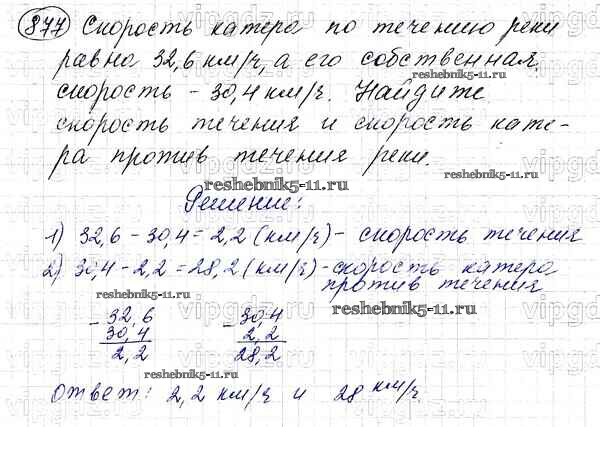 877 Скорость катера по течению реки
равна 32,6 км/ч, а его собственная
reshebnik5-11.ru
скорость - 30,4 км/ч. Найдите
скорость течения и скорость кате-
ра против течения реки.
reshebnik5-11.ru
reshebnik5-11.ru
Решение:
1) 32,6 - 30,4 = 2,2 (км/ч) - скорость течения
2) 30,4 - 2,2 = 28,2 (км/ч) - скорость катера
против течения
reshebnik5-11.ru
reshebnik5-11.ru
- 32,6 - 30,4
30,4 2,2
2,2 28,2
reshebnik5-11.ru
ответ: 2,2 км/ч и 28 км/ч.